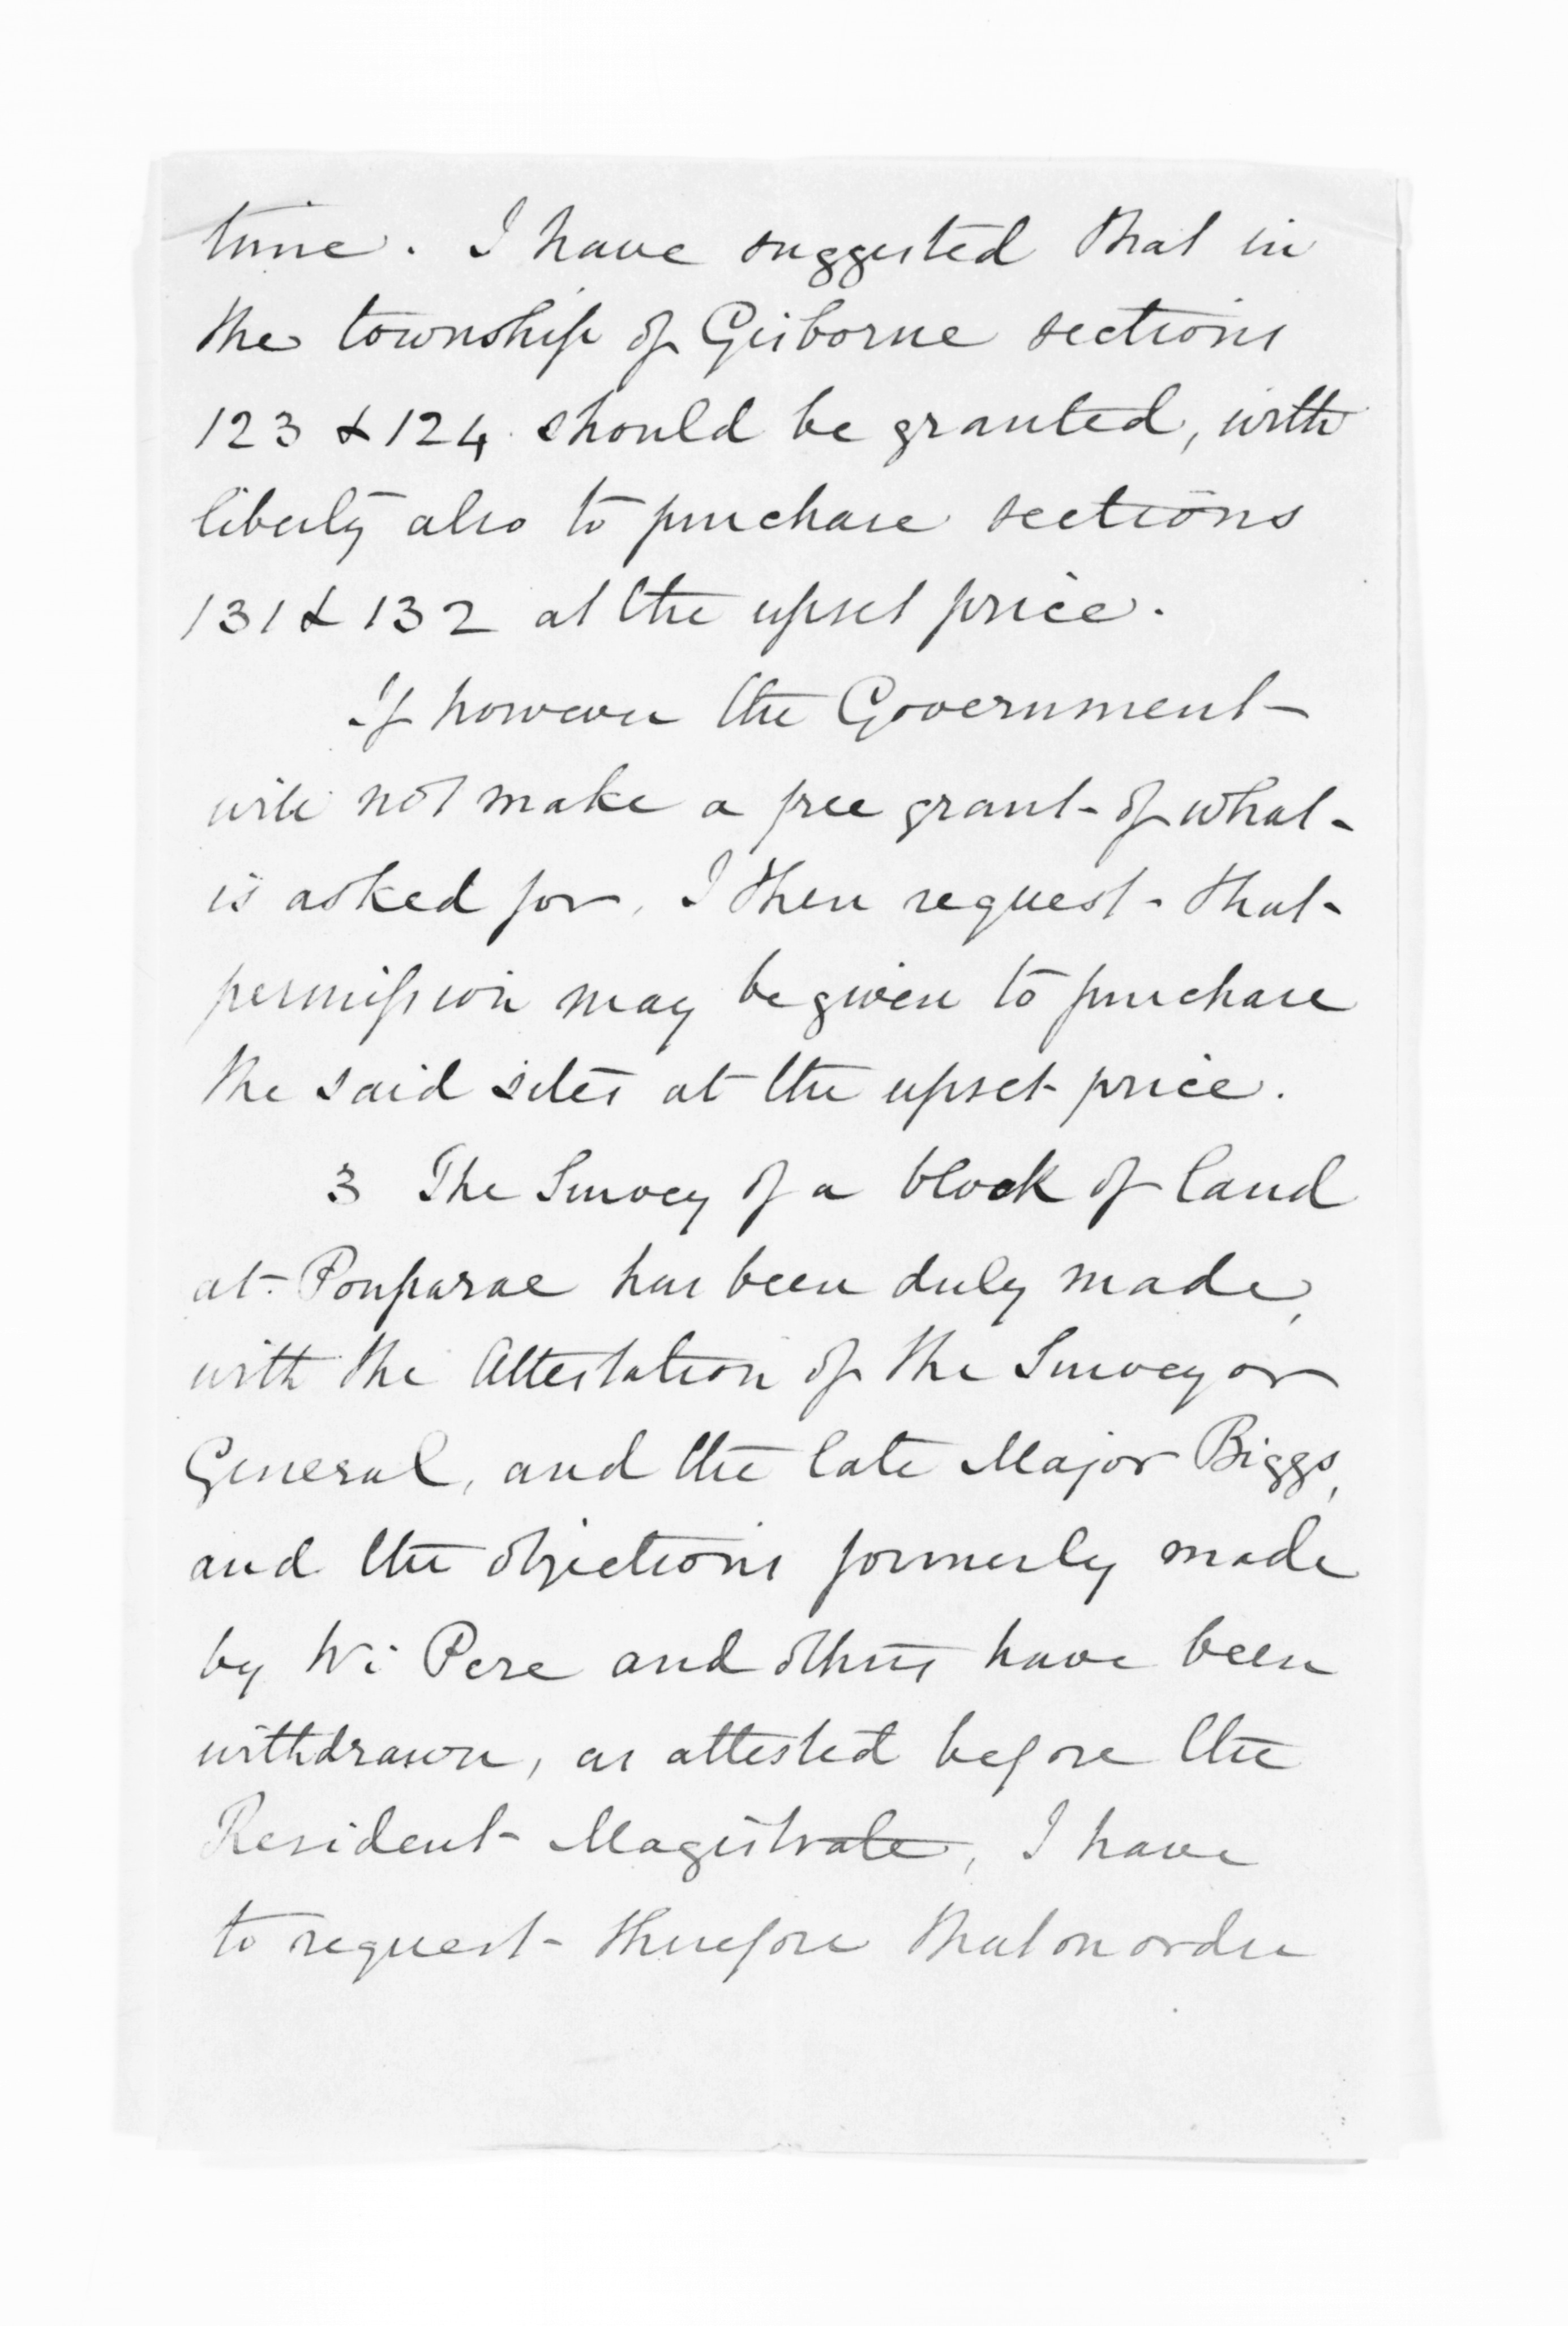 time. I have suggested that in
the township of Gisborne sections
123 & 124 should be granted, with
liberty also to purchase sections
131 & 132 at the upset price.
If however the Government
will not make a free grant of what
is asked for, I then request that
permission may be given to purchase
the said sites at the upset price.
3 The Survey of a block of land
at Pouparae has been duly made,
with the Attestation of the Surveyor
General, and the late Major Biggs,
and the objections formerly made
by Wi Pere and others have been
withdrawn, as attested before the
Resident Magistrate, I have
to request therefore that an order